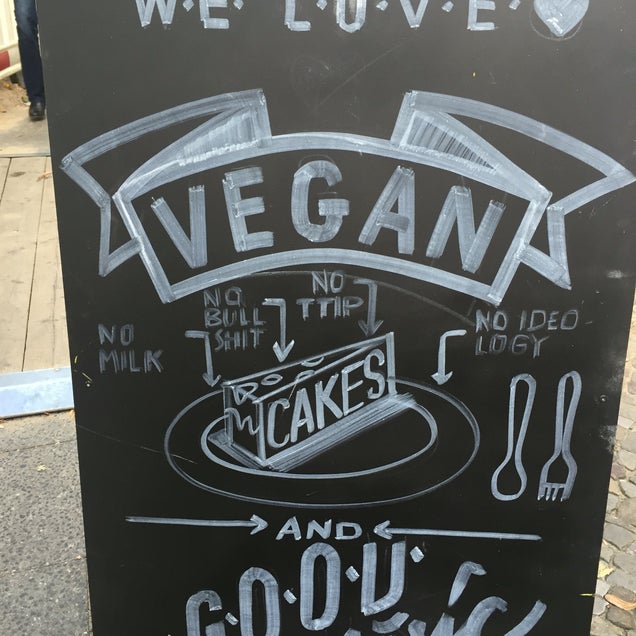 W·E· L·O·V·E·
VEGAN
NO
MILK
NO
BULL
SHIT
NO
TTIP
NO IDEO
LOGY
CAKES
AND
G·O·O·D·